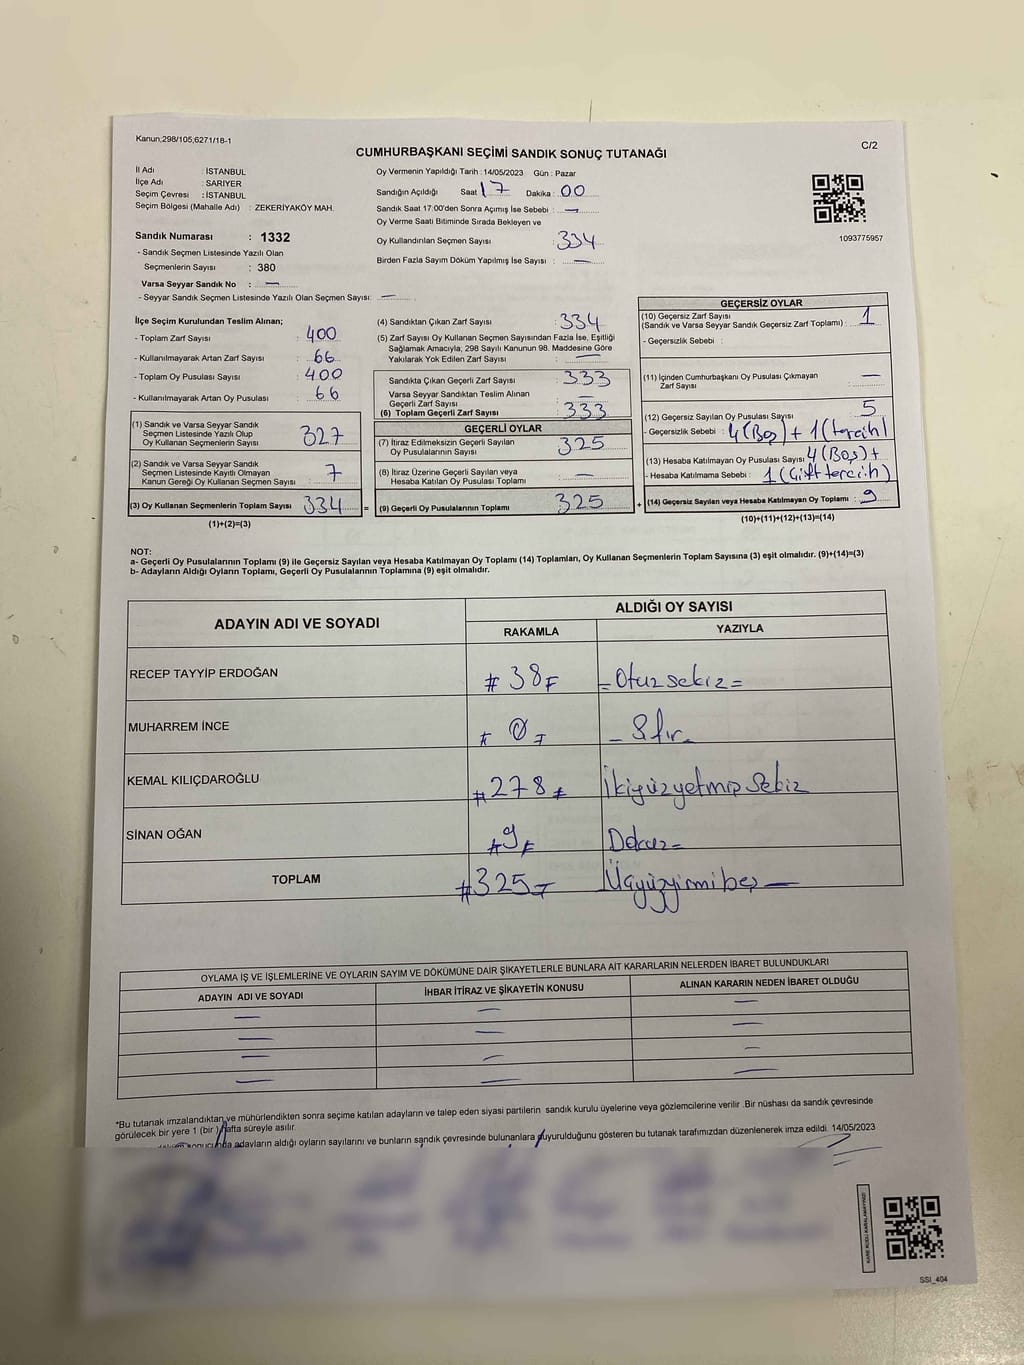 Kanun;298/105;6271/18-1
C/2
CUMHURBAŞKANI SEÇİMİ SANDIK SONUÇ TUTANAĞI
İl Adı : İSTANBUL
İlçe Adı : SARIYER
Seçim Çevresi : İSTANBUL
Seçim Bölgesi (Mahalle Adı) : ZEKERİYAKÖY MAH.
Sandık Numarası : 1332
- Sandık Seçmen Listesinde Yazılı Olan
Seçmenlerin Sayısı : 380
Varsa Seyyar Sandık No : —
- Seyyar Sandık Seçmen Listesinde Yazılı Olan Seçmen Sayısı: —
Oy Vermenin Yapıldığı Tarih : 14/05/2023 Gün : Pazar
Sandığın Açıldığı Saat 17 Dakika : 00
Sandık Saat 17:00'den Sonra Açımış İse Sebebi : —
Oy Verme Saati Bitiminde Sırada Bekleyen ve
Oy Kullandırılan Seçmen Sayısı : 334
Birden Fazla Sayım Döküm Yapılmış İse Sayısı : —
1093775957
İlçe Seçim Kurulundan Teslim Alınan;
- Toplam Zarf Sayısı : 400
- Kullanılmayarak Artan Zarf Sayısı : 66
- Toplam Oy Pusulası Sayısı : 400
- Kullanılmayarak Artan Oy Pusulası : 66
(1) Sandık ve Varsa Seyyar Sandık
Seçmen Listesinde Yazılı Olup
Oy Kullanan Seçmenlerin Sayısı : 327
(2) Sandık ve Varsa Seyyar Sandık
Seçmen Listesinde Kayıtlı Olmayan
Kanun Gereği Oy Kullanan Seçmen Sayısı : 7
(3) Oy Kullanan Seçmenlerin Toplam Sayısı : 334 =
(1)+(2)=(3)
(4) Sandıktan Çıkan Zarf Sayısı : 334
(5) Zarf Sayısı Oy Kullanan Seçmen Sayısından Fazla İse, Eşitliği
Sağlamak Amacıyla, 298 Sayılı Kanunun 98. Maddesine Göre
Yakılarak Yok Edilen Zarf Sayısı : —
Sandıkta Çıkan Geçerli Zarf Sayısı : 333
Varsa Seyyar Sandıktan Teslim Alınan
Geçerli Zarf Sayısı : —
(6) Toplam Geçerli Zarf Sayısı : 333
GEÇERLİ OYLAR
(7) İtiraz Edilmeksizin Geçerli Sayılan
Oy Pusulalarının Sayısı : 325
(8) İtiraz Üzerine Geçerli Sayılan veya
Hesaba Katılan Oy Pusulası Toplamı : —
(9) Geçerli Oy Pusulalarının Toplamı : 325 +
GEÇERSİZ OYLAR
(10) Geçersiz Zarf Sayısı
(Sandık ve Varsa Seyyar Sandık Geçersiz Zarf Toplamı) : 1
- Geçersizlik Sebebi :
(11) İçinden Cumhurbaşkanı Oy Pusulası Çıkmayan
Zarf Sayısı : —
(12) Geçersiz Sayılan Oy Pusulası Sayısı : 5
- Geçersizlik Sebebi : 4 (Boş) + 1 (tercih)
(13) Hesaba Katılmayan Oy Pusulası Sayısı 4 (Boş) +
- Hesaba Katılmama Sebebi : 1 (Çift tercih)
(14) Geçersiz Sayılan veya Hesaba Katılmayan Oy Toplamı : 9
(10)+(11)+(12)+(13)=(14)
NOT:
a- Geçerli Oy Pusulalarının Toplamı (9) ile Geçersiz Sayılan veya Hesaba Katılmayan Oy Toplamı (14) Toplamları, Oy Kullanan Seçmenlerin Toplam Sayısına (3) eşit olmalıdır. (9)+(14)=(3)
b- Adayların Aldığı Oyların Toplamı, Geçerli Oy Pusulalarının Toplamına (9) eşit olmalıdır.
ADAYIN ADI VE SOYADI
ALDIĞI OY SAYISI
RAKAMLA YAZIYLA
RECEP TAYYİP ERDOĞAN # 38 = Otuzsekiz =
MUHARREM İNCE 0 - Sıfır -
KEMAL KILIÇDAROĞLU # 278 İkiyüzyetmişSekiz
SİNAN OĞAN # 9 Dokuz =
TOPLAM # 325 Üçyüzyirmibeş —
OYLAMA İŞ VE İŞLEMLERİNE VE OYLARIN SAYIM VE DÖKÜMÜNE DAİR ŞİKAYETLERLE BUNLARA AİT KARARLARIN NELERDEN İBARET BULUNDUKLARI
ADAYIN ADI VE SOYADI İHBAR İTİRAZ VE ŞİKAYETİN KONUSU ALINAN KARARIN NEDEN İBARET OLDUĞU
*Bu tutanak imzalandıktan ve mühürlendikten sonra seçime katılan adayların ve talep eden siyasi partilerin sandık kurulu üyelerine veya gözlemcilerine verilir .Bir nüshası da sandık çevresinde
görülecek bir yere 1 (bir ) hafta süreyle asılır.
adayların aldığı oyların sayılarını ve bunların sandık çevresinde bulunanlara duyurulduğunu gösteren bu tutanak tarafımızdan düzenlenerek imza edildi. 14/05/2023
KARE KODU KARALAMAYINIZ!
SSI_404